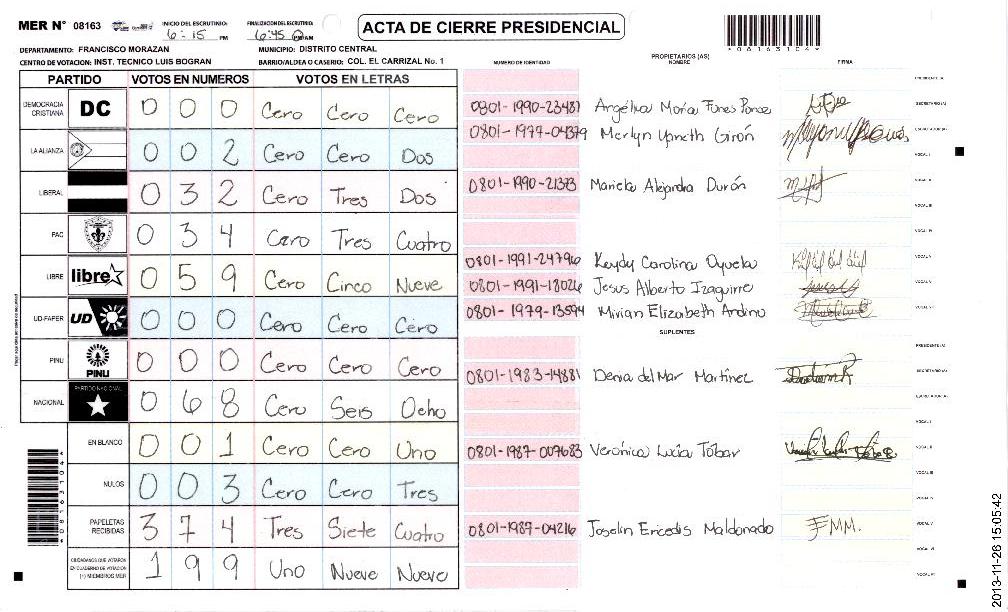 MER N° 08163
INICIO DEL ESCRUTINIO:
6:15 PM
FINALIZACION DEL ESCRUTINIO:
6:45 PM AM
ACTA DE CIERRE PRESIDENCIAL
*08163104*
DEPARTAMENTO: FRANCISCO MORAZAN
MUNICIPIO: DISTRITO CENTRAL
CENTRO DE VOTACION: INST. TECNICO LUIS BOGRAN
BARRIO/ALDEA O CASERIO: COL. EL CARRIZAL No. 1
NUMERO DE IDENTIDAD
PROPIETARIOS (AS)
NOMBRE
FIRMA
PARTIDO VOTOS EN NUMEROS VOTOS EN LETRAS
DEMOCRACIA CRISTIANA DC 0 0 0 Cero Cero Cero
LA ALIANZA 0 0 2 Cero Cero Dos
LIBERAL 0 3 2 Cero Tres Dos
PAC 0 3 4 Cero Tres Cuatro
LIBRE libre 0 5 9 Cero Cinco Nueve
UD-FAPER UD 0 0 0 Cero Cero Cero
PINU PINU 0 0 0 Cero Cero Cero
NACIONAL PARTIDO NACIONAL 0 6 8 Cero Seis Ocho
EN BLANCO 0 0 1 Cero Cero Uno
NULOS 0 0 3 Cero Cero Tres
PAPELETAS RECIBIDAS 3 7 4 Tres Siete Cuatro
CIUDADANOS QUE VOTARON EN CUADERNO DE VOTACION (+) MIEMBROS MER 1 9 9 Uno Nueve Nueve
PRESIDENTE(A)
0801-1990-23487 Angélica María Funes Ponce SECRETARIO(A)
0801-1977-04379 Merlyn Yaneth Girón ESCRUTADOR(A)
VOCAL I
0801-1990-21373 Mariela Alejandra Durón VOCAL II
VOCAL III
VOCAL IV
0801-1991-24796 Keydy Carolina Oyuela VOCAL V
0801-1991-18026 Jesus Alberto Izaguirre
0801-1979-13594 Mirian Elizabeth Andino
SUPLENTES
PRESIDENTE(A)
0801-1983-14881 Denia del Mar Martínez SECRETARIO(A)
ESCRUTADOR(A)
VOCAL I
0801-1987-007683 Verónica Lucía Tóbar VOCAL II
VOCAL III
VOCAL IV
0801-1987-04216 Joselin Ericedis Maldonado FMM. VOCAL V
VOCAL VI
VOCAL VII
2013-11-26 15:05:42